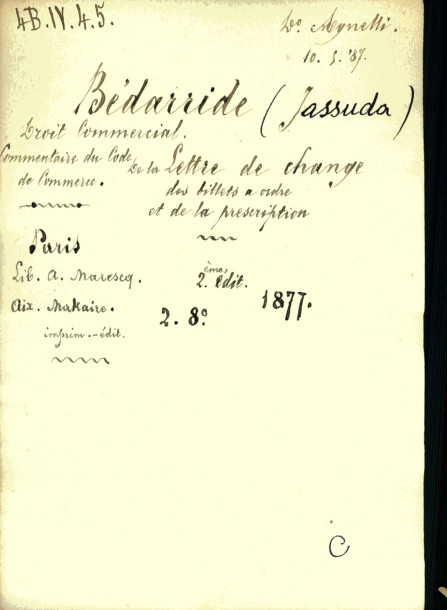 4B.IV.4.5.
Do. Mynetti.
10. 5. '87.
Bédarride (Jassuda)
Droit Commercial.
Commentaire du Code
de Commerce.
De la Lettre de change
des billets a ordre
et de la prescription
Paris
Lib. A. Marescq.
2.ème édit.
Aix. Makaire.
imprim.-édit.
2. 8.º
1877.
C